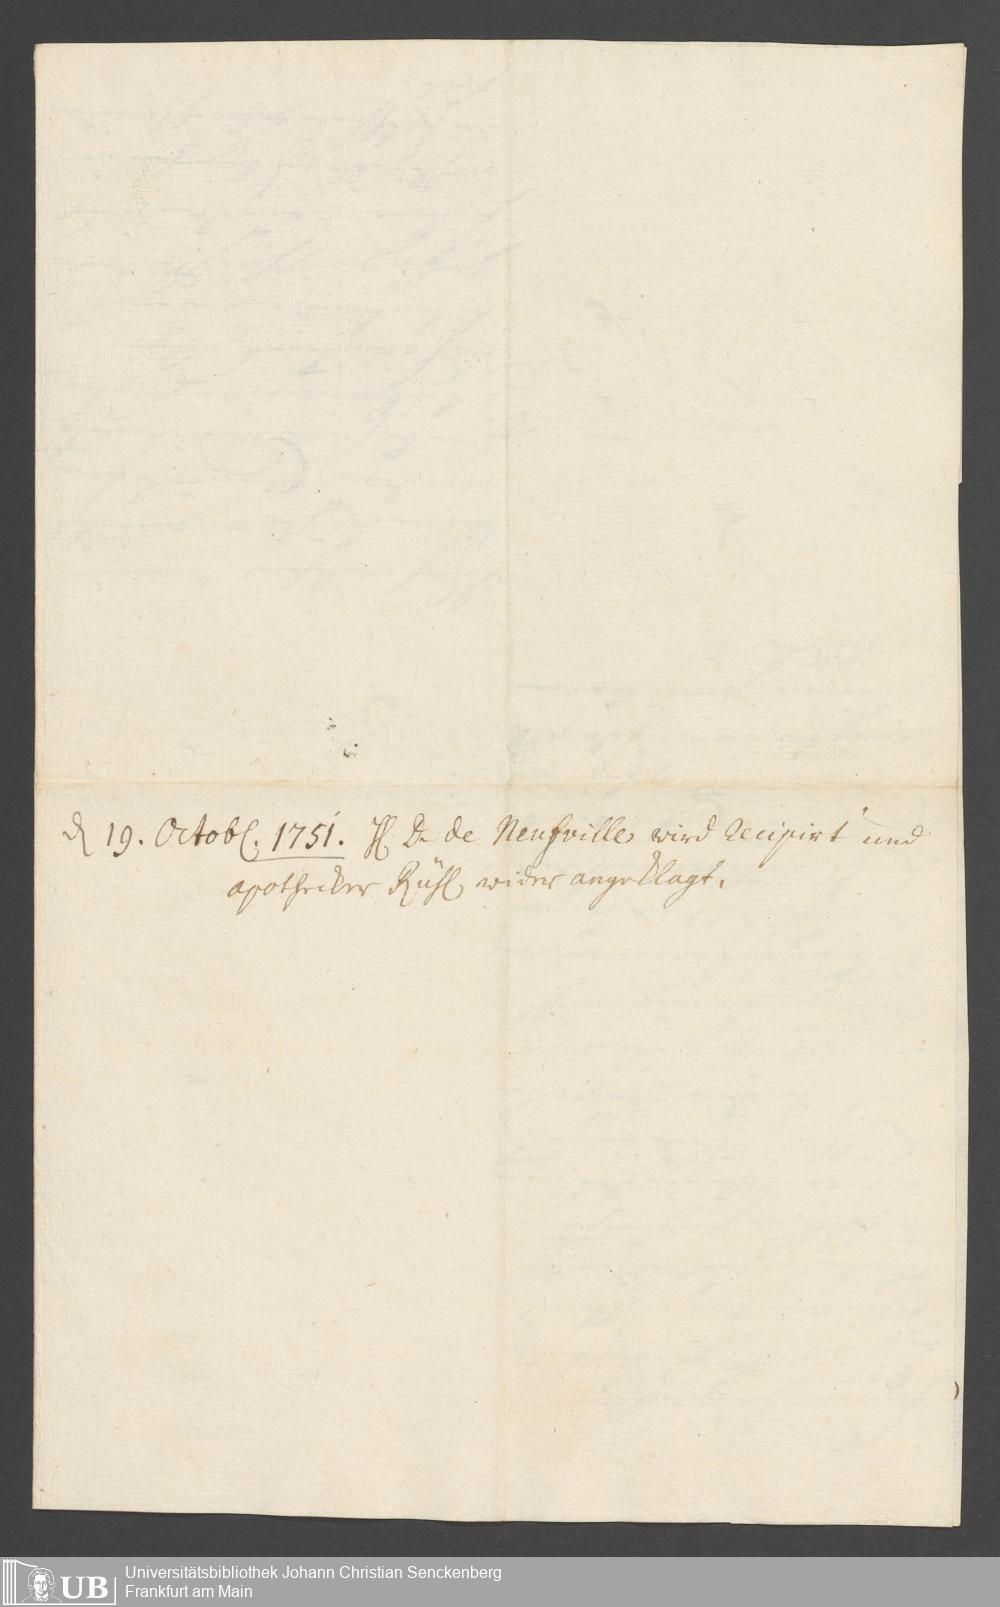 d 19. Octobr. 1751. H D. de Neufville wird recipirt und
apothecker Rühl wider angeklagt.
UB
Universitätsbibliothek Johann Christian Senckenberg
Frankfurt am Main